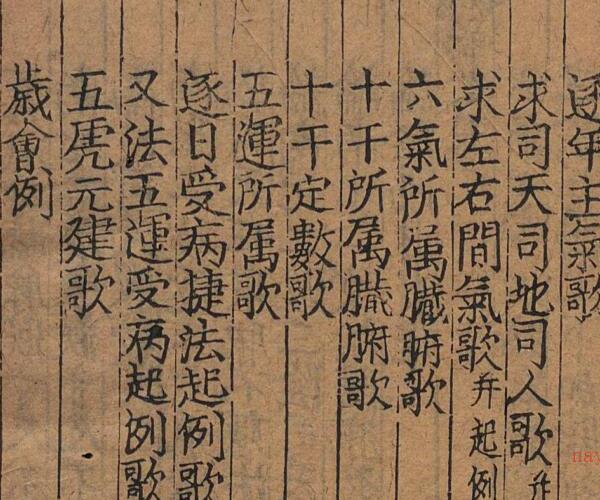 逐年主气歌
求司天司地司人歌并
求左右間氣歌并起例
六氣所属臟腑歌
十干所属臓腑歌
十干定數歌
五運所属歌
逐日受病捷法起例歌
又法五運受病起例歌
五虎元建歌
歲會例